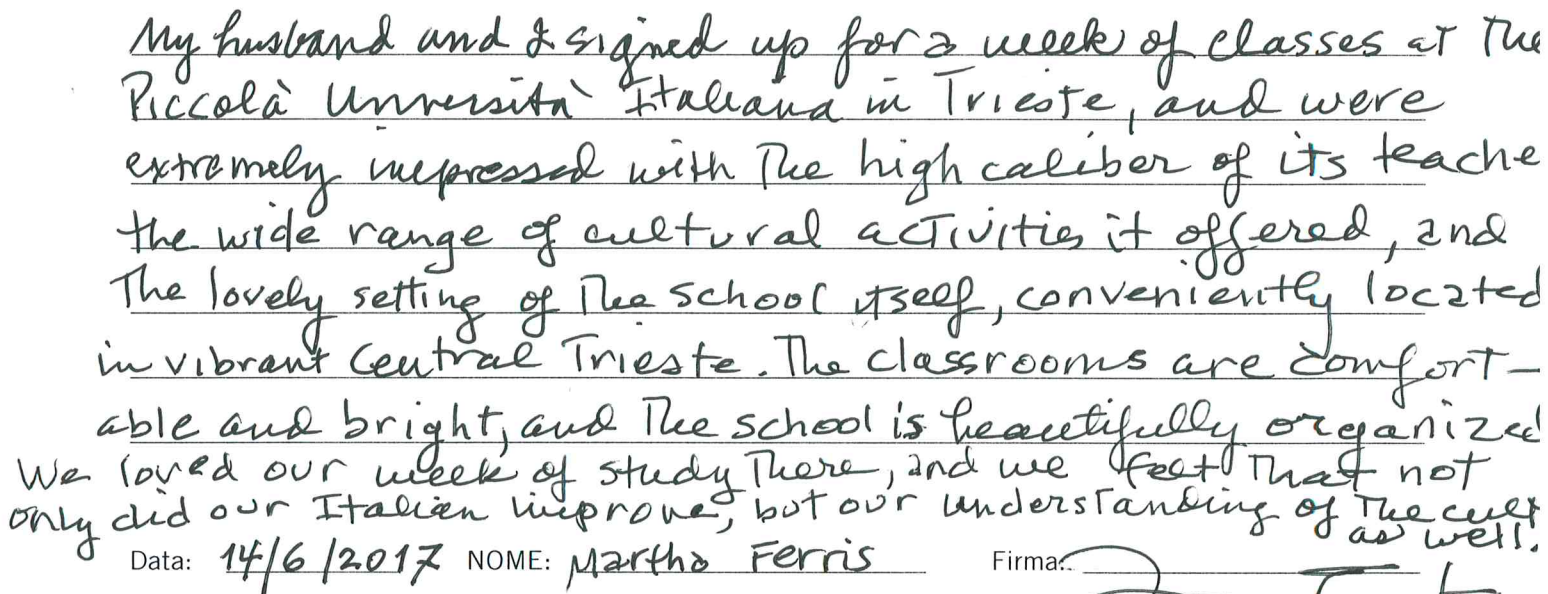 My husband and I signed up for a week of classes at the
Piccolà Università Italiana in Trieste, and were
extremely impressed with the high caliber of its teache
the wide range of cultural activities it offered, and
The lovely setting of the school itself, conveniently located
in vibrant central Trieste. The classrooms are comfort-
able and bright, and the school is beautifully organized
We loved our week of study there, and we felt that not
only did our Italian improve, but our understanding of the cult
as well.
Data: 14/6/2017 NOME: Martha Ferris Firma: